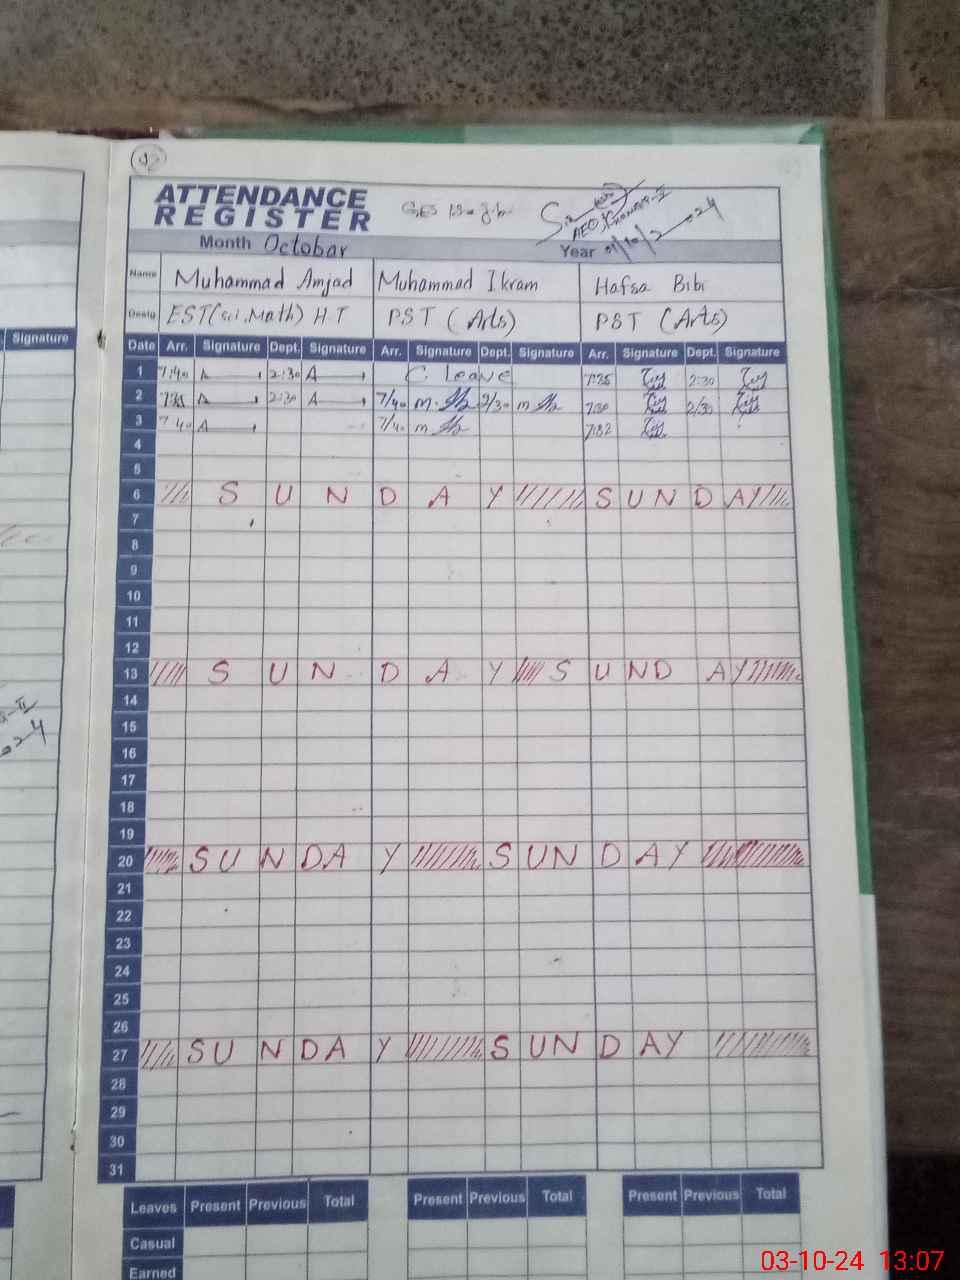 92
ATTENDANCE
REGISTER
GES
AEO
Month Octobar Year 01/10/2024
Name Muhammad Amjad Muhammad Ikram Hafsa Bibi
Desig EST(Sci.Math) H.T PST (Arts) PST (Arts)
Signature
Date Arr. Signature Dept. Signature Arr. Signature Dept. Signature Arr. Signature Dept. Signature
1 7:40 A 2:30 A C. Leave 7:35 2:30
2 7:35 A 2:30 A 7/40 m. 2/30 m 7:30 2/30
3 7:40 A 7/40 m 7:32
4
5
6 SUNDAY SUNDAY
7
8
9
10
11
12
13 SUNDAY SUNDAY
14
15
16
17
18
19
20 SUNDAY SUNDAY
21
22
23
24
25
26
27 SUNDAY SUNDAY
28
29
30
31
Leaves Present Previous Total Present Previous Total Present Previous Total
Casual
Earned
03-10-24 13:07